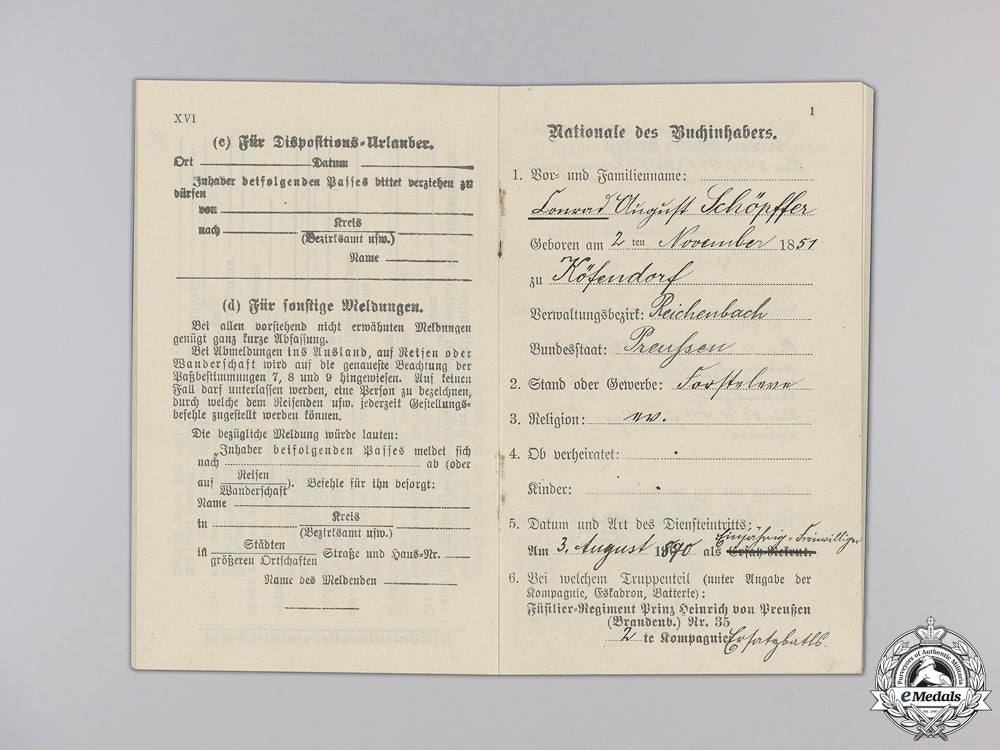 XVI
(c) Für Dispositions-Urlauber.
Ort Datum
Inhaber beifolgenden Passes bittet verziehen zu
dürfen
von
nach Kreis
(Bezirksamt usw.)
Name
(d) Für sonstige Meldungen.
Bei allen vorstehend nicht erwähnten Meldungen
genügt ganz kurze Abfassung.
Bei Abmeldungen ins Ausland, auf Reisen oder
Wanderschaft wird auf die genaueste Beachtung der
Paßbestimmungen 7, 8 und 9 hingewiesen. Auf keinen
Fall darf unterlassen werden, eine Person zu bezeichnen,
durch welche dem Reisenden usw. jederzeit Gestellungs-
befehle zugestellt werden können.
Die bezügliche Meldung würde lauten:
„Inhaber beifolgenden Passes meldet sich
nach ab (oder
auf Reisen
Wanderschaft). Befehle für ihn besorgt:
Name
in Kreis
(Bezirksamt usw.)
in Städten
größeren Ortschaften Straße und Haus-Nr.
Name des Meldenden
1
Nationale des Buchinhabers.
1. Vor- und Familienname:
Conrad August Schöpffer
Geboren am 2 ten November 1851
zu
Verwaltungsbezirk: Reichenbach
Bundesstaat: Preußen
2. Stand oder Gewerbe: Forsteleve
3. Religion: ev.
4. Ob verheiratet:
Kinder:
5. Datum und Art des Diensteintritts:
Einjährig-Freiwilliger
Am 3. August als Ersatz-Rekrut.
6. Bei welchem Truppenteil (unter Angabe der
Kompagnie, Eskadron, Batterie):
Füsilier-Regiment Prinz Heinrich von Preußen
(Brandenb.) Nr. 35
2 te Kompagnie Ersatzbatls.
Purveyors of Authentic Militaria
eMedals